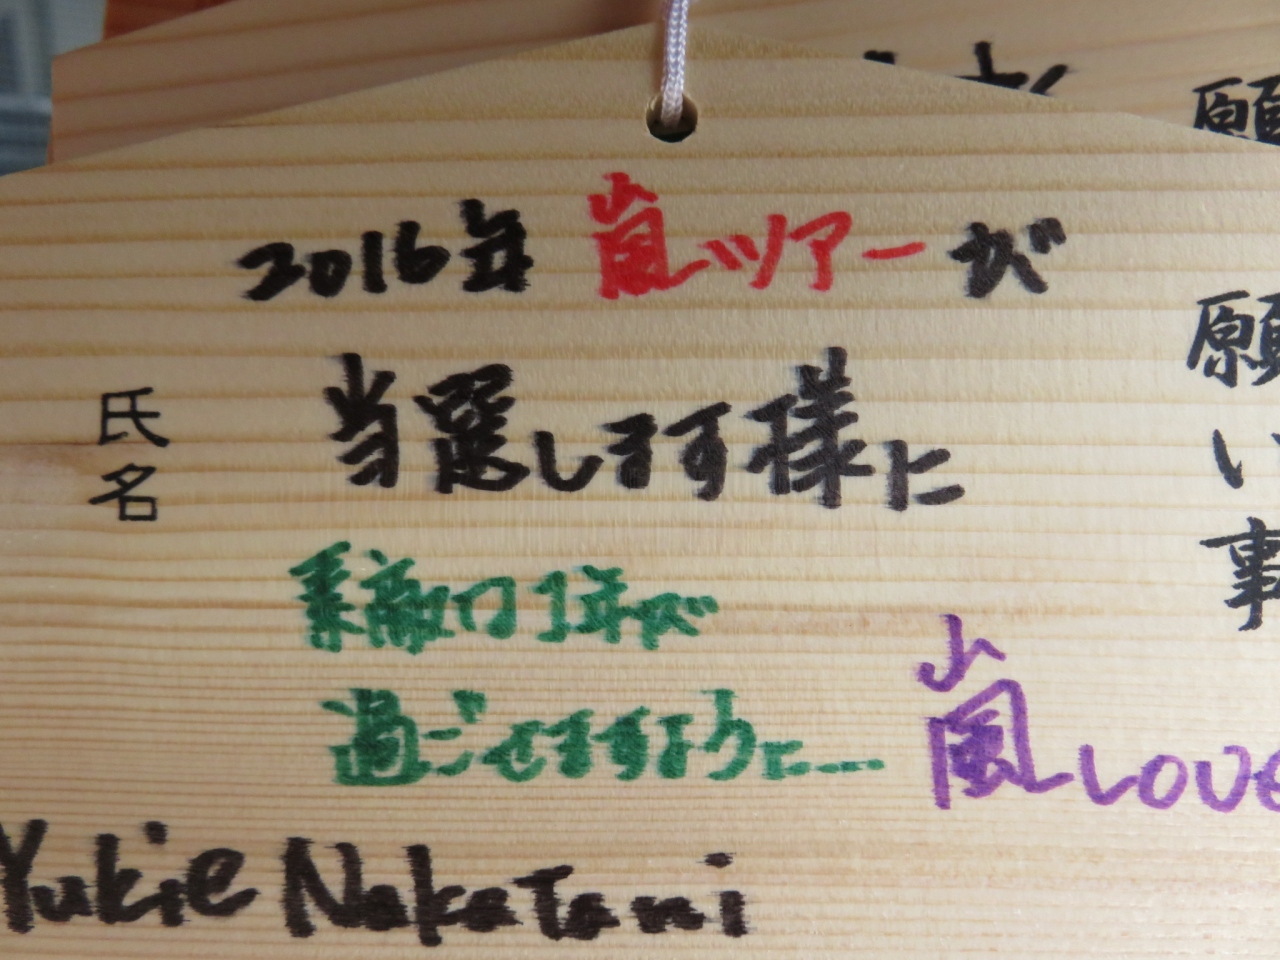 2016年 嵐ツアーが
当選します様に
素敵な1年が
過ごせますように
嵐 LOVE
Yukie Nakatani
氏名
願い事
願